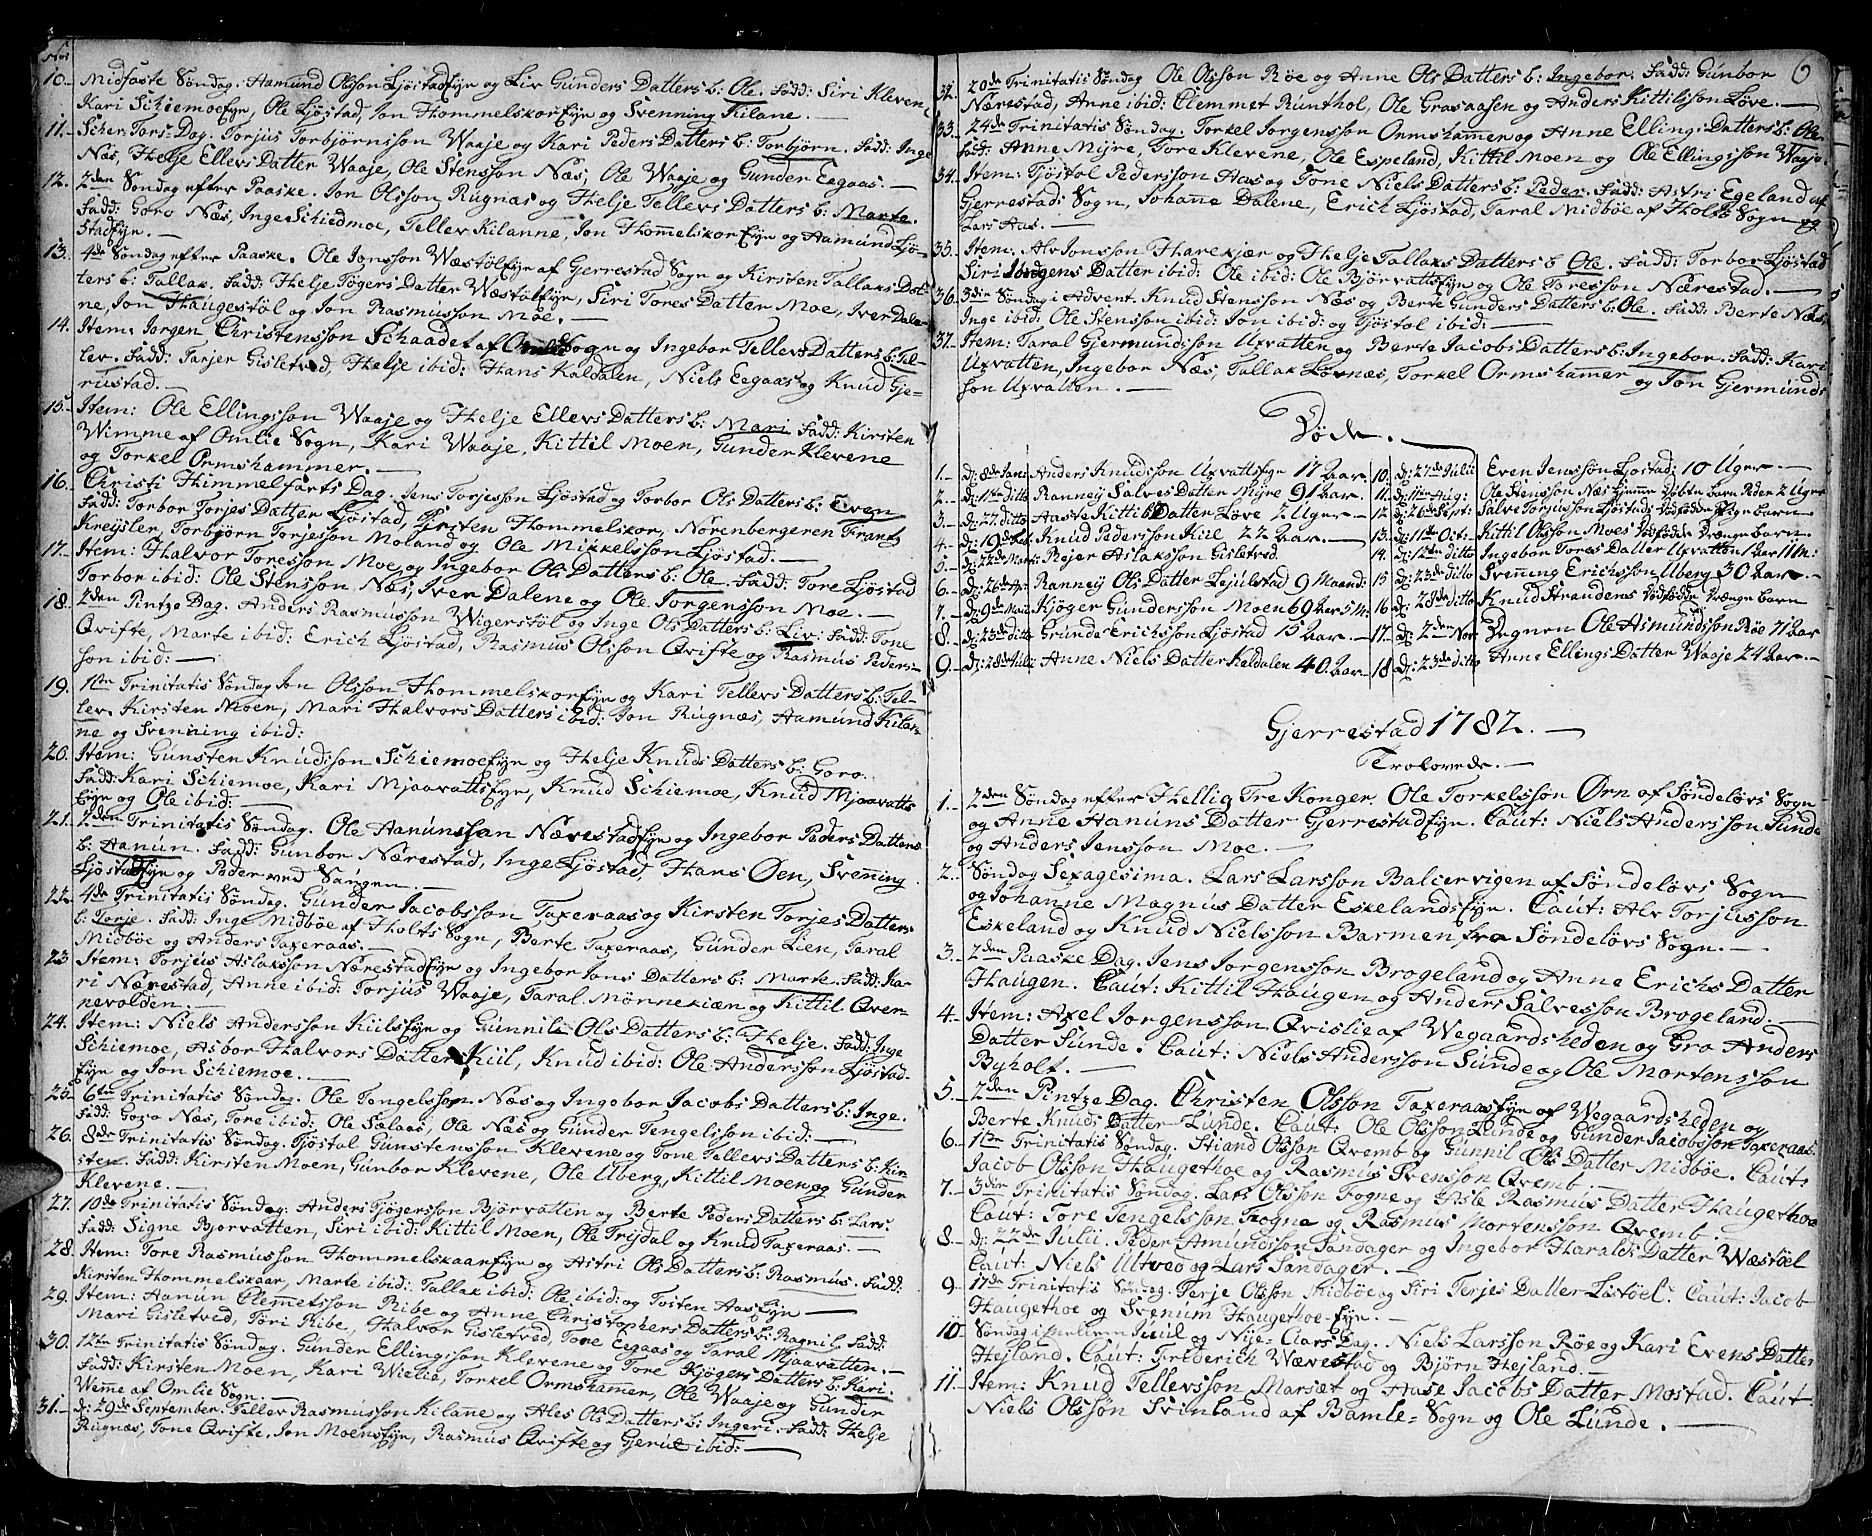 No:
10. Midfaste Søndag: Aamund Olsson Ljøstadfyn og Liv Gunders Datters b: Ole. Fadd: Siri Kleven,
Kari Schiemoefyn, Ole Ljøstad, Jon Thommelskorfyn og Svenning Kilane.
11. Scher Tors-Dag. Torjus Torbjørnsson Waaje og Kari Peders Datters b: Torbjørn. Fadd: Inge
Næs, Thelje Ellevs Datter Waaje, Ole Stensson Næs, Ole Waaje og Gunder Eegaas.
12. 2den Søndag efter Paaske. Jon Olsson Rugnæs og Thelje Tellevs Datters b: Marte.
Fadd: Goro Næs, Inge Schiedmoe, Tellev Kilanne, Jon Thommelskorfyn og Aamund Ljø-
stadfyn.
13. 4de Søndag efter Paaske. Ole Jonsson Wæstølfyn af Gerrestad Sogn og Kirsten Tallaks Dat-
ters b: Tallak. Fadd: Thelje Tøgers Datter Wæstølfyn, Siri Tores Datter Moe, Iver Dale-
ne, Jon Thaugestøl og Jon Rasmusson Moe.
14. Item: Jorgen Christensson Schaadet af Omlie Sogn og Ingebor Tellevs Datters b: Tel-
lev. Fadd: Tarjer Gisletved, Thelje ibid: Thans Kaldalen, Niels Eegaas og Knud Gje-
rustad.
15. Item: Ole Ellingsson Waaje og Thelje Ellevs Datters b: Mari. Fadd: Kirsten
Wimme af Omlie Sogn, Kari Waaje, Kittil Moen, Gunder Klevene
og Torkel Ormshammer.
16. Christi Himmelfarts Dag. Jens Torjesson Ljøstad og Torbor Ols Datters b: Even.
Fadd: Torbor Torjes Datter Ljøstad, Kirsten Thommelskor, Nørenbergeren Frantz
Kreysler, Torbjørn Torjeson Moland og Ole Mikkelsson Ljøstad.
17. Item: Thalvor Toresson Moe og Ingebor Ols Datters b: Ole. Fadd: Tore Ljøstad
Torbor ibid: Ole Stensson Næs, Iver Dalene og Ole Torgensson Moe.
18. 2den Pintze Dag. Anders Rasmusson Wigerstøl og Inge Ols Datters b: Liv: Fadd: Tone
Qvifte, Marte ibid: Erich Ljøstad, Rasmus Olsson Qvifte og Rasmus Peders-
son ibid:
19. 1ste Trinitatis Søndag Jon Olsson Thommelskorfyn og Kari Tellevs Datters b: Tel-
lev. Kirsten Moen, Mari Thalvors Datters ibid: Jon Rugnæs, Aamund Kilan-
ne og Svenning ibid:
20. Item: Gunsten Knudsson Schiemoefyn og Thelje Knuds Datters b: Goro.
Fadd: Kari Schiemoe, Kari Mjaavattsfyn, Knud Schiemoe, Knud Mjaavatts
fyn og Ole ibid:
21. 2den Trinitatis Søndag. Ole Aanunsson Nærestadfyn og Ingebor Peders Datters
b: Aanun. Fadd: Gunbor Nærestad, Inge Ljøstad, Thans Øen, Svening
Ljøstadfyn og Peder ved Sangen.
22. 4de Trinitatis Søndag. Gunder Jacobsson Taxeraas og Kirsten Torjes Datters
b: Torje. Fadd: Inge Midbøe af Tholts Sogn, Berte Taxeraas, Gunder Lien, Taral
Midbøe og Anders Taxeraas.
23. Item: Torjus Aslaksson Nærestadfyn og Ingebor Jons Datters b: Marte. Fadd: Ka-
ri Nærestad, Anne ibid: Torjus Waaje, Taral Mønnekiæn og Kittil Qven-
nevolden.
24. Item: Niels Andersson Kiilsfyn og Gunnild Ols Datters b: Thelje. Fadd: Inge
Schiemoe, Asbor Thalvors Datter Kiil, Knud ibid: Ole Andersson Ljøstad-
fyn og Jon Schiemoe.
25. 6te Trinitatis Søndag. Ole Tengelsson Næs og Ingebor Jacobs Datters b: Inge.
Fadd: Goro Næs, Tore ibid: Ole Salaas, Ole Næs og Gunder Tengelsson ibid:
26. 8de Trinitatis Søndag. Tjøstøl Gunstensson Klevene og Tone Tellevs Datters b: Kir
sten. Fadd: Kirsten Moen, Gunbor Klevene, Ole Uberg, Kittil Moen og Gunder
Klevene.
27. 10de Trinitatis Søndag. Anders Tjøgersson Bjørvatten og Berte Peders Datters b: Lars.
Fadd: Signe Bjorvatten, Siri ibid: Kittil Moen, Ole Trydal og Knud Taxeraas.
28. Item: Tore Rasmusson Thommelskaarfyn og Astri Ols Datters b: Rasmus. Fadd:
Kirsten Thommelskaar, Marte ibid: Tallak ibid: Ole ibid: og Tosten Aasfyn
29. Item: Aanun Clemmetsson Ribe og Anne Christophers Datters b: Ragnil. Fadd:
Mari Gisletved, Tori Ribe, Halvor Gisletved, Tone Eegaas og Taral Mjaavatten.
30. 12te Trinitatis Søndag. Gunder Ellingsson Klevene og Tore Kjøgers Datters b: Kari.
Fadd: Kirsten Moen, Kari Wielie, Torkel Ormshamer, Ole Waaje og Gunder
Wemme af Omlie Sogn.
31. d: 29de September. Tellev Rasmusson Kilanne og Ales Ols Datters b: Ingeri. Fadd: Thelje
Rugnæs, Tone Qvifte, Jon Moensfyn, Rasmus Qvifte og Gjerut ibid:
32. 20de Trinitatis Søndag Ole Olsson Røe og Anne Ols Datters b: Ingebor. Fadd: Gunbor
Nærestad, Anne ibid: Clemmet Runthol, Ole Grasaasen og Anders Kittilsson Løve.
33. 24de Trinitatis Søndag. Torkel Jorgensson Ormshamer og Anne Ellings Datters b: Ole
Fadd: Anne Myre, Tore Klevene, Ole Espeland, Kittil Moen og Ole Ellingsson Waaje.
34. Item: Tjøstol Pedersson Aas og Tone Niels Datters b: Peder. Fadd: Astri Egeland af
Gjerrestad: Sogn, Johanne Dalene, Erich Ljøstad, Taral Midbøe af Tholts Sogn og
Lars Aas.
35. Item: Alv Jonsson Tharekjær og Thelje Tallaks Datters b Ole. Fadd: Torbor Ljøstad
Siri Jorgens Datter ibid: Ole ibid: Ole Bjørvattsfyn og Ole Bresson Nærestad.
36. 3die Søndag i Advent. Knud Stensson Næs og Berte Gunders Datters b: Ole. Fadd: Berte Næs,
Inge ibid: Ole Stensson ibid: Jon ibid: og Tjøstol ibid:
37. Item: Taral Gjermundsson Uxvatten og Berte Jacobs Datters b: Ingebor. Fadd: Kari
Uxvatten, Ingebor Næs, Tallak Løvnæs, Torkel Ormshamer og Jon Gjermunds
son Uxvatten.
Døde.
1. d: 8de Jan: Anders Knudsson Uxvattsfyn 17 Aar.
2. d: 11te Ditto Ranney Salves Datter Myre 91 Aar.
3. d: 27. ditto Aaste Kittils Datter Løve 2 Uger
4. d: 19de Feb: Knud Pedersson Kiil 22 Aar.
5. d: 22de Mart: Rejer Aslaksson Gisletved
6. d: 26de Apr: Ranney Ols Datter Lejulstad 9 Maand:
7. d: 9de Maii Kjøger Gundersson Moen 69 Aar 5 M:
8. d: 23de ditto Grunde Erichsson Ljøstad 15 Aar.
9. d: 28de Juli: Anne Niels Datter Keldalen 40 Aar
10. d: 27de Julii Even Jensson Ljøstad: 10 Uger.
11. d: 11te Aug: Ole Stensson Næs hjemme døbte barn Peder 2 Uger
12. d: 26de Sept: Salve Torjusson Ljøstads Dødfødde Pige barn
13. d: 11te Oct: Kittil Olsson Moes Dødfødde Drænge barn
14. d: 12te ditto Ingebor Tores Datter Uxvatten 1 Aar 11 M:
15. d: 23de ditto Svenning Erichsson Uberg 30 Aar.
16. d: 28de ditto Knud Straudens Dødfødde Drænge barn
17. d: 2den Nov: Degnen Ole Asmundsson Røe 71 Aar
18. d: 23de ditto Anne Ellings Datter Waaje 24 Aar.
Gjerrestad 1782.
Trolovede.
1. 2den Søndag efter Hellig Tre Konger. Ole Torkelsson Ørn af Søndeløvs Sogn
og Anne Aanuns Datter Gjerrestadfyn. Caut: Niels Andersson Sunde
og Anders Jensson Moe.
2. Søndag Sexagesima. Lars Larsson Balcervigen af Søndeløvs Sogn
og Johanne Magnus Datter Eskelandsfyn. Caut: Alv Torjusson
Eskeland og Knud Nielsson Barmen fra Søndeløvs Sogn.
3. 2den Paaske Dag. Jens Jorgensson Brogeland og Anne Erichs Datter
Haugen. Caut: Kittil Haugen og Anders Salvesson Brogeland.
4. Item: Axel Jorgensson Qvislie af Wegaardsheden og Gro Anders
Datter Sunde. Caut: Niels Andersson Sunde og Ole Mortensson
Byholt.
5. 2den Pintze Dag. Christen Olsson Taxeraasfyn af Wegaardsheden og
Berte Knuds Datter Lunde. Caut: Ole Olsson Lunde og Gunder Jacobsson Taxeraas.
6. 1ste Trinitatis Søndag. Stiand Olsson Qvemb og Gunnil Ols Datter Midbøe. Caut:
Jacob Olsson Haugethoe og Rasmus Svensson Qvemb.
7. 3die Trinitatis Søndag. Lars Olsson Fogne og Asle Rasmus Datter Haugethoe
Caut: Tore Tengelsson Fogne og Rasmus Mortensson Qvemb.
8. d: 22de Julii. Peder Amundsson Sandager og Ingebor Haralds Datter Wæstøel
Caut: Niels Ultveo og Lars Sandager.
9. 17de Trinitatis Søndag. Terje Olsson Midbøe og Siri Terjes Datter Løstøel: Caut: Jacob
Haugethoe og Svenum Haugethoe-fyn.
10. Søndag imellem Juul og Nye-Aars Dag. Niels Larsson Røe og Kari Evens Datter
Hejland. Caut: Frederich Wævestad og Bjørn Hejland.
11. Item: Knud Tellevsson Marsæt og Aase Jacobs Datter Mostad. Caut:
Niels Olssøn Svinland af Bamle-Sogn og Ole Lunde.